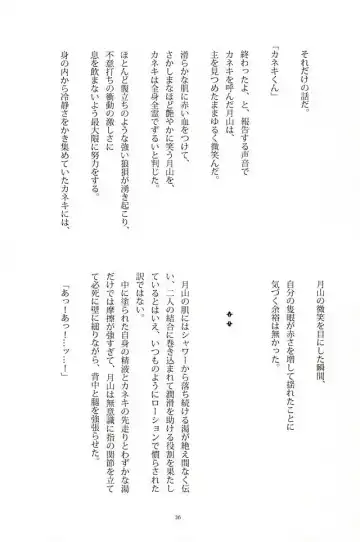 それだけの話だ。
「カネキくん」
終わったよ、と、報告する声音で
カネキを呼んだ月山は、
主を見つめたままゆるく微笑んだ。
滑らかな肌に赤い血をつけて、
さかしまなほど艶やかに笑う月山を、
カネキは全身全霊でずるいと判じた。
ほとんど腹立ちのような強い狼狽が湧き起こり、
不意打ちの衝動の激しさに
息を飲まないよう最大限に努力をする。
身の内から冷静さをかき集めていたカネキには、
月山の微笑を目にした瞬間、
自分の隻眼が赤さを増して揺れたことに
気づく余裕は無かった。
月山の肌にはシャワーから落ち続ける湯が絶え間なく伝
い、二人の結合に巻き込まれて潤滑を助ける役割を果たし
ているとはいえ、いつものようにローションで慣らされた
訳ではない。
中に塗られた自身の精液とカネキの先走りとわずかな湯
だけでは摩擦が強すぎて、月山は無意識に指の関節を立て
て必死に壁に縋りながら、背中と腿を強張らせた。
「あっ！あっ！…ッ…！」
36